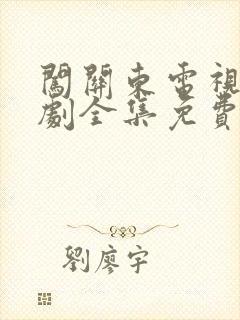 闖關東電視
劇全集免費
劉廖宇